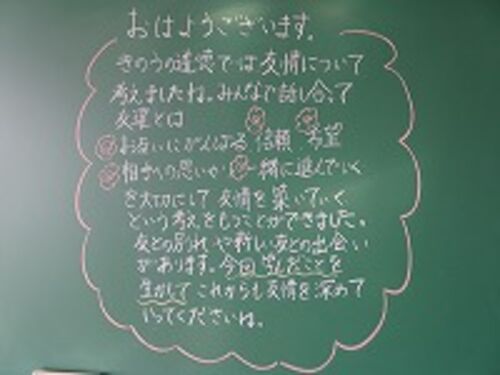 おはようございます。
きのうの道徳では友情について
考えましたね。みんなで話し合って
友達とは
お互いにがんばる 信頼 希望
相手への思いやり 一緒に進んでいく
を大切にして友情を築いていく
という考えをもつことができました。
友との別れや新しい友との出会い
があります。今回学んだことを
生かしてこれからも友情を深めて
いってくださいね。